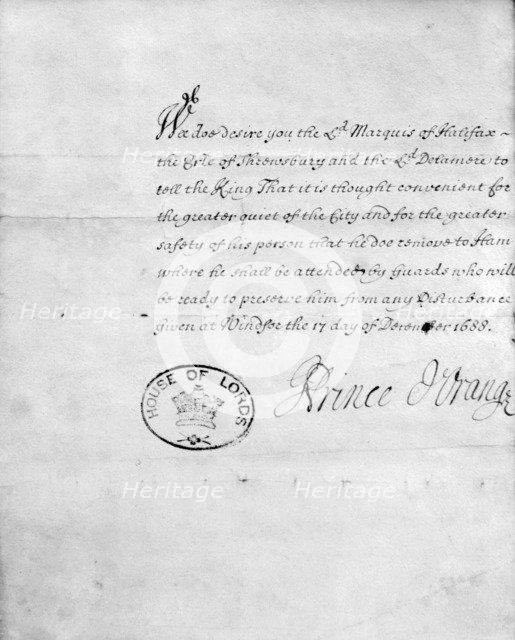 We doe desire you the Ld Marquis of Halifax
the Erle of Shrewsbury and the Ld Delamere to
tell the King That it is thought convenient for
the greater quiet of the City and for the greater
safety of his person that he doe remove to Ham
where he shall be attended by guards who will
be ready to preserve him from any Disturbance
given at Windsor the 17 day of December 1688.
Prince d'Orange
HOUSE OF LORDS
Heritage
Heritage
Heritage
Heritage
Heritage
Heritage